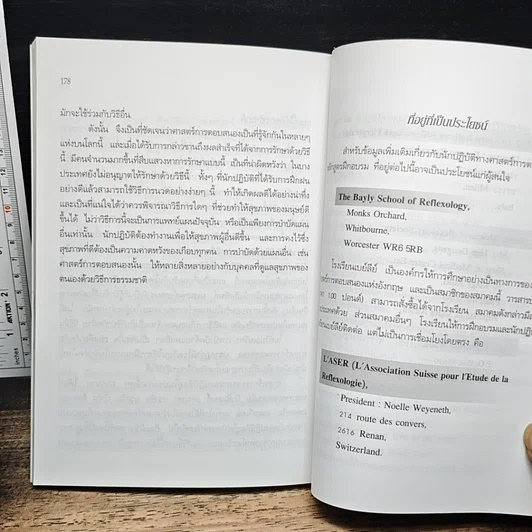 178
มักจะใช้ร่วมกับวิธีอื่น
ดังนั้น จึงเป็นที่ชัดเจนว่าศาสตร์การตอบสนองเป็นที่รู้จักกันในหลายๆ
แห่งบนโลกนี้ และเมื่อได้รับการกล่าวขานถึงผลสำเร็จที่ได้จากการรักษาด้วยวิธี
นี้ มีคนจำนวนมากขึ้นที่แสวงหาการรักษาแบบนี้ เป็นที่น่าผิดหวังว่า ในบาง
ประเทศยังไม่อนุญาตให้รักษาด้วยวิธีนี้ ทั้งๆ ที่นักปฏิบัติที่ได้รับการฝึกฝน
อย่างดีแล้วสามารถใช้วิธีการนวดอย่างง่ายๆ นี้ ทำให้เกิดผลดีได้อย่างน่าทึ่ง
และเป็นที่แน่ใจได้ว่าควรพิจารณาวิธีการใดๆ ที่ช่วยทำให้สุขภาพของมนุษย์ดี
ขึ้นได้ ไม่ว่าวิธีการนี้จะเป็นการแพทย์แผนปัจจุบัน หรือเป็นเพียงการบำบัดแผน
อื่นเท่านั้น นักปฏิบัติต้องทำงานเพื่อให้สุขภาพผู้อื่นดีขึ้น และการคงไว้ซึ่ง
สุขภาพที่ดีต้องเป็นความคาดหวังของเกือบทุกคน การบำบัดด้วยแผนอื่น เช่น
ศาสตร์การตอบสนองนั้น ให้หลายสิ่งหลายอย่างกับบุคคลที่ดูแลสุขภาพของ
ตนเองด้วยวิธีการธรรมชาติ
ที่อยู่ที่เป็นประโยชน์
สำหรับข้อมูลเพิ่มเติมเกี่ยวกับนักปฏิบัติทางศาสตร์การตอ
หลักสูตรฝึกอบรม ที่อยู่ต่อไปนี้อาจเป็นประโยชน์แก่ผู้สนใจ
The Bayly School of Reflexology,
Monks Orchard,
Whitbourne,
Worcester WR6 5RB
โรงเรียนเบย์ลีย์ เป็นองค์กรให้การศึกษาอย่างเป็นทางการของ
ศาสตร์การตอบสนองแห่งอังกฤษ และเป็นสมาชิกของสมาคมนี้ วารสาร
1.00 ปอนด์) สามารถสั่งซื้อได้จากโรงเรียน สมาคมดังกล่าวมี
ประเทศด้วย ส่วนสมาคมอื่นๆ โรงเรียนให้การฝึกอบรมและนักปฏิ
เรียนเบย์ลีย์ติดต่อ แต่ไม่เป็นการเชื่อมโยงโดยตรง คือ
L'ASER (L'Association Suisse pour l'Etude de la
Reflexologie),
President : Noelle Weyeneth,
214 route des convers,
2616 Renan,
Switzerland.